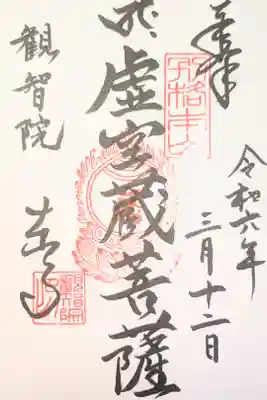 奉拝
令和六年
三月十二日
別格本山
虚空蔵菩薩
観智院
東寺